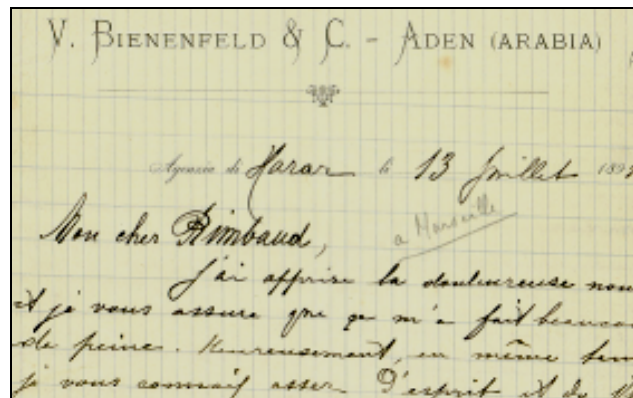 V. BIENENFELD & C. - ADEN (ARABIA)
Agenzia di Harar li 13 Juillet 189
a Marseille
Mon cher Rimbaud,
J'ai apprise la douleureuse nou
et je vous assure que ça m'a fait beaucou
de peine. Heureusement, en même tem
je vous connais assez d'esprit et de